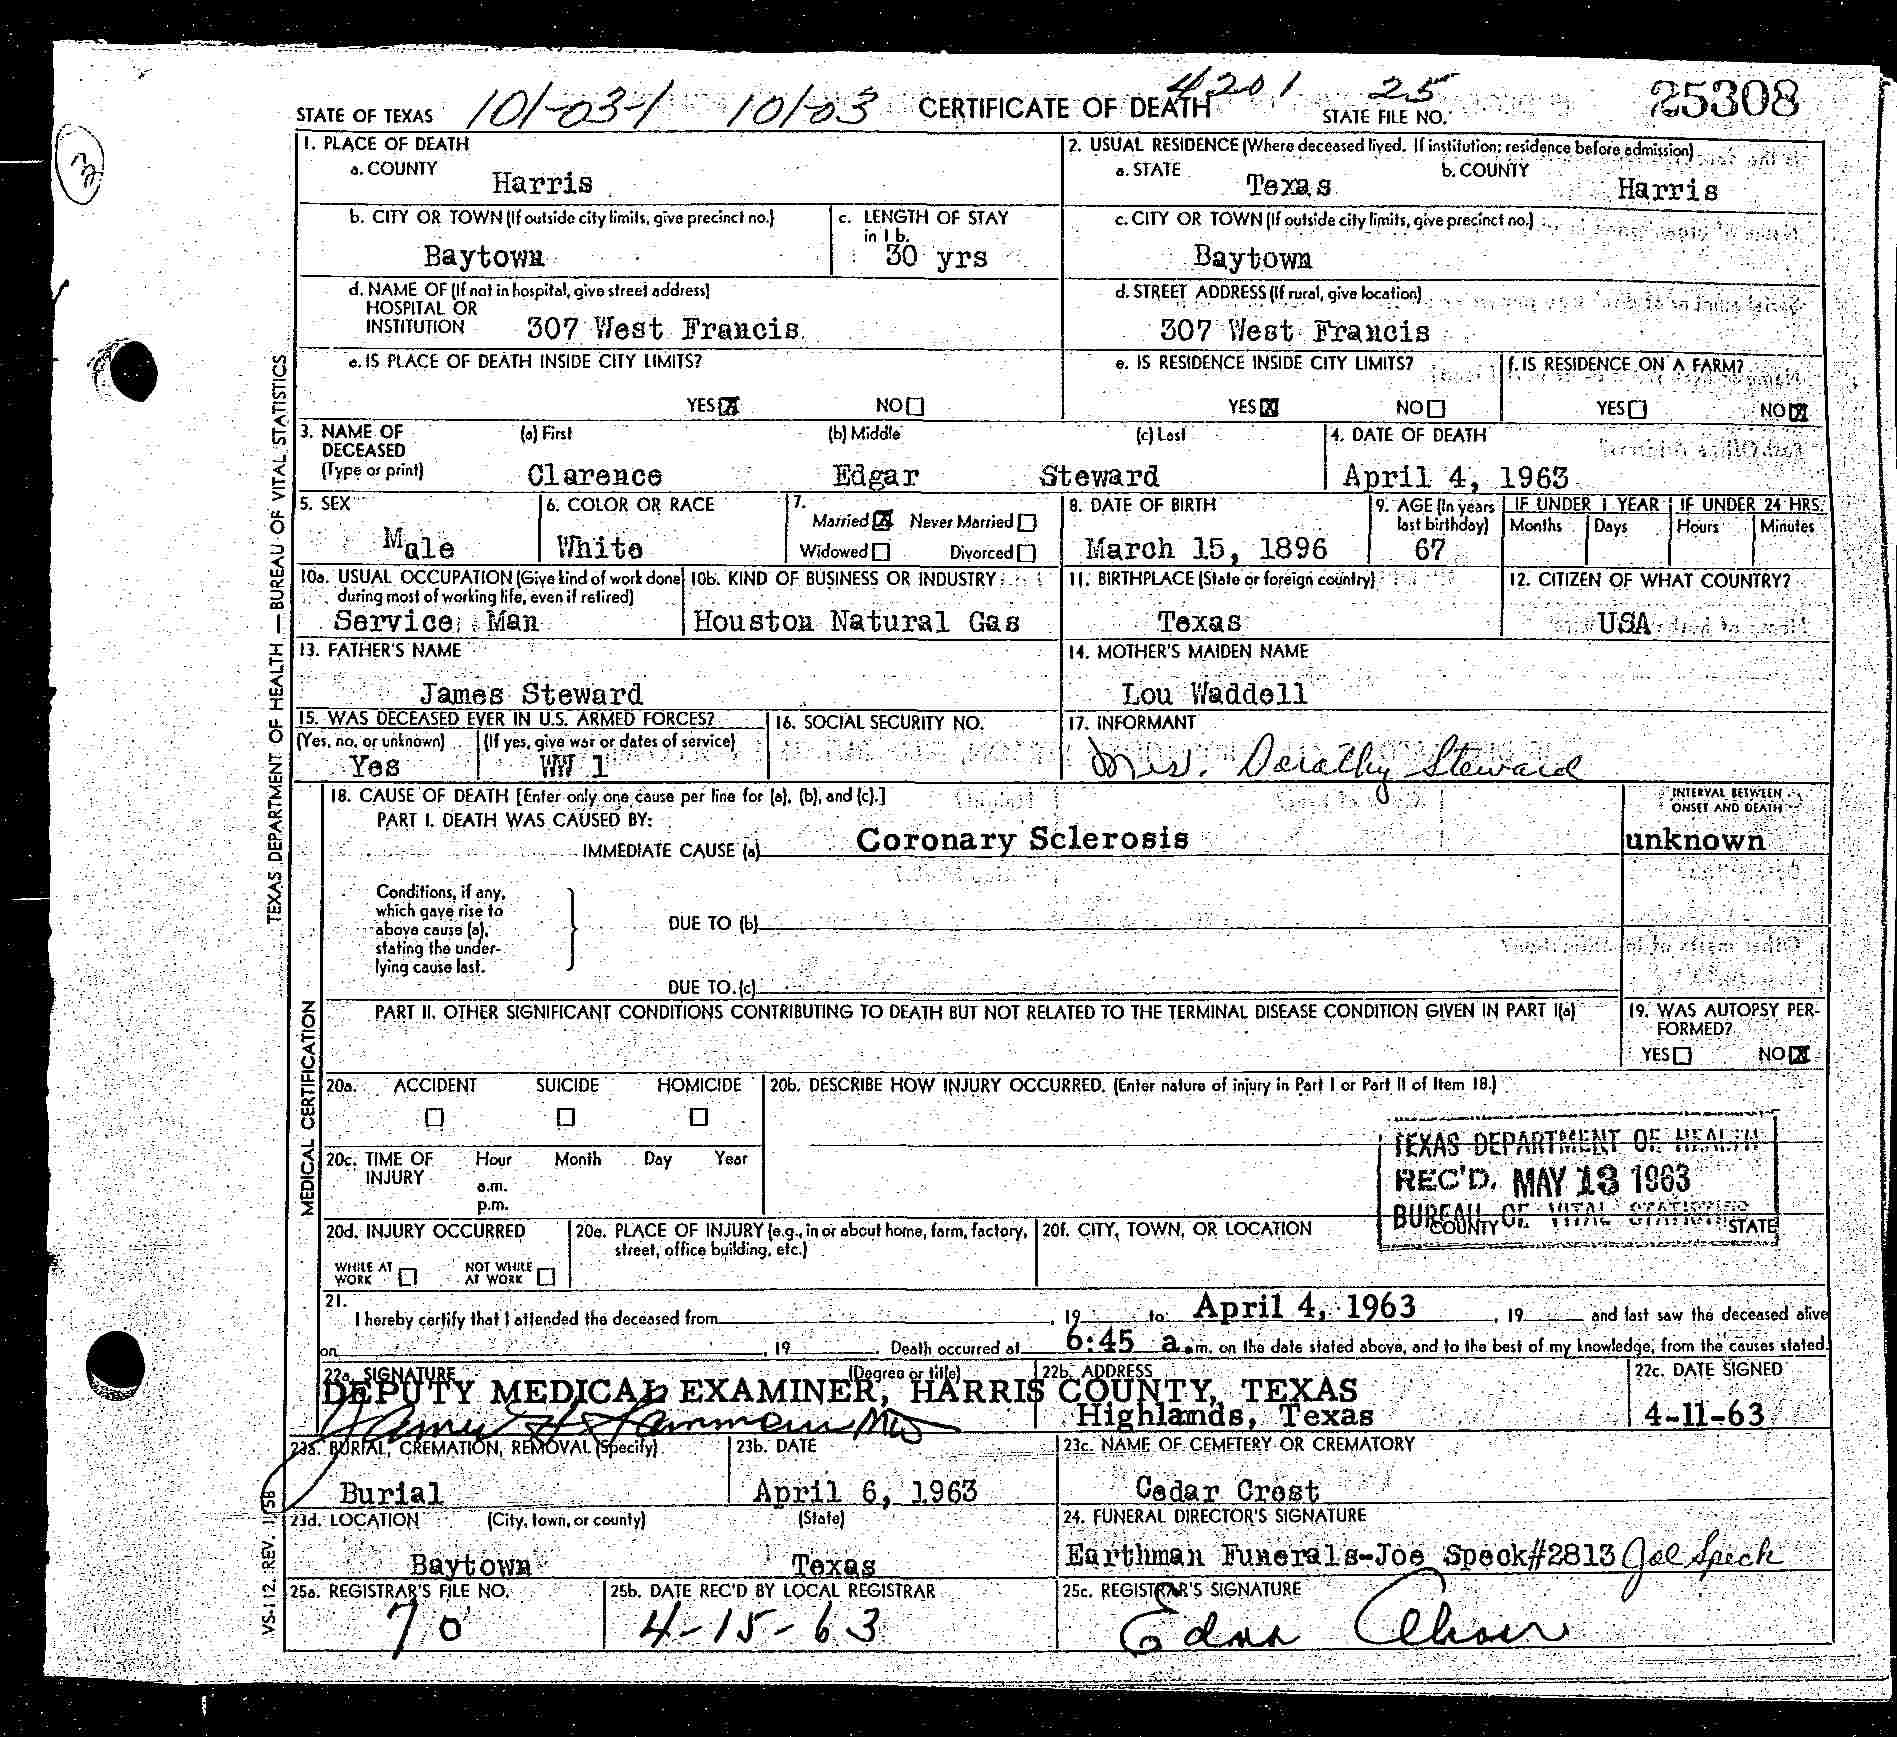 STATE OF TEXAS 101-03-1 10103 CERTIFICATE OF DEATH 4201 STATE FILE NO. 25 25308
3
TEXAS DEPARTMENT OF HEALTH — BUREAU OF VITAL STATISTICS
1. PLACE OF DEATH
a. COUNTY
Harris
2. USUAL RESIDENCE (Where deceased lived. If institution: residence before admission)
a. STATE b. COUNTY
Texas Harris
b. CITY OR TOWN (If outside city limits, give precinct no.)
Baytown
c. LENGTH OF STAY
in 1b.
30 yrs
c. CITY OR TOWN (If outside city limits, give precinct no.)
Baytown
d. NAME OF (If not in hospital, give street address)
HOSPITAL OR
INSTITUTION 307 West Francis
d. STREET ADDRESS (If rural, give location)
307 West Francis
e. IS PLACE OF DEATH INSIDE CITY LIMITS?
YES X NO
e. IS RESIDENCE INSIDE CITY LIMITS?
YES X NO
f. IS RESIDENCE ON A FARM?
YES NO X
3. NAME OF DECEASED (Type or print)
(a) First (b) Middle (c) Last
Clarence Edgar Steward
4. DATE OF DEATH
April 4, 1963
5. SEX
Male
6. COLOR OR RACE
White
7.
Married X Never Married
Widowed Divorced
8. DATE OF BIRTH
March 15, 1896
9. AGE (In years last birthday)
67
IF UNDER 1 YEAR IF UNDER 24 HRS.
Months Days Hours Minutes
10a. USUAL OCCUPATION (Give kind of work done
during most of working life, even if retired)
Service Man
10b. KIND OF BUSINESS OR INDUSTRY
Houston Natural Gas
11. BIRTHPLACE (State or foreign country)
Texas
12. CITIZEN OF WHAT COUNTRY?
USA
13. FATHER'S NAME
James Steward
14. MOTHER'S MAIDEN NAME
Lou Waddell
15. WAS DECEASED EVER IN U.S. ARMED FORCES?
(Yes, no, or unknown) (If yes, give war or dates of service)
Yes WW 1
16. SOCIAL SECURITY NO.
17. INFORMANT
Mrs. Dorathy Steward
MEDICAL CERTIFICATION
18. CAUSE OF DEATH [Enter only one cause per line for (a), (b), and (c).]
PART I. DEATH WAS CAUSED BY:
IMMEDIATE CAUSE (a) Coronary Sclerosis
INTERVAL BETWEEN
ONSET AND DEATH
unknown
Conditions, if any,
which gave rise to
above cause (a),
stating the under-
lying cause last.
DUE TO (b)
DUE TO (c)
PART II. OTHER SIGNIFICANT CONDITIONS CONTRIBUTING TO DEATH BUT NOT RELATED TO THE TERMINAL DISEASE CONDITION GIVEN IN PART I(a)
19. WAS AUTOPSY PER-
FORMED?
YES NO X
20a. ACCIDENT SUICIDE HOMICIDE
20b. DESCRIBE HOW INJURY OCCURRED. (Enter nature of injury in Part I or Part II of Item 18.)
20c. TIME OF INJURY Hour Month Day Year
a.m.
p.m.
TEXAS DEPARTMENT OF HEALTH
REC'D. MAY 13 1963
BUREAU OF VITAL STATISTICS
20d. INJURY OCCURRED
WHILE AT WORK NOT WHILE AT WORK
20e. PLACE OF INJURY (e.g., in or about home, farm, factory,
street, office building, etc.)
20f. CITY, TOWN, OR LOCATION COUNTY STATE
21.
I hereby certify that I attended the deceased from , 19 to April 4, 1963 , 19 and last saw the deceased alive
on , 19 . Death occurred at 6:45 a.m. on the date stated above, and to the best of my knowledge, from the causes stated.
22a. SIGNATURE (Degree or title) 22b. ADDRESS 22c. DATE SIGNED
DEPUTY MEDICAL EXAMINER, HARRIS COUNTY, TEXAS
Highlands, Texas 4-11-63
23a. BURIAL, CREMATION, REMOVAL (Specify)
Burial
23b. DATE
April 6, 1963
23c. NAME OF CEMETERY OR CREMATORY
Cedar Crest
23d. LOCATION (City, town, or county) (State)
Baytown Texas
24. FUNERAL DIRECTOR'S SIGNATURE
Earthman Funerals-Joe Speck#2813 Joe Speck
25a. REGISTRAR'S FILE NO.
70
25b. DATE REC'D BY LOCAL REGISTRAR
4-15-63
25c. REGISTRAR'S SIGNATURE
Edna
VS-112. REV. 1/58